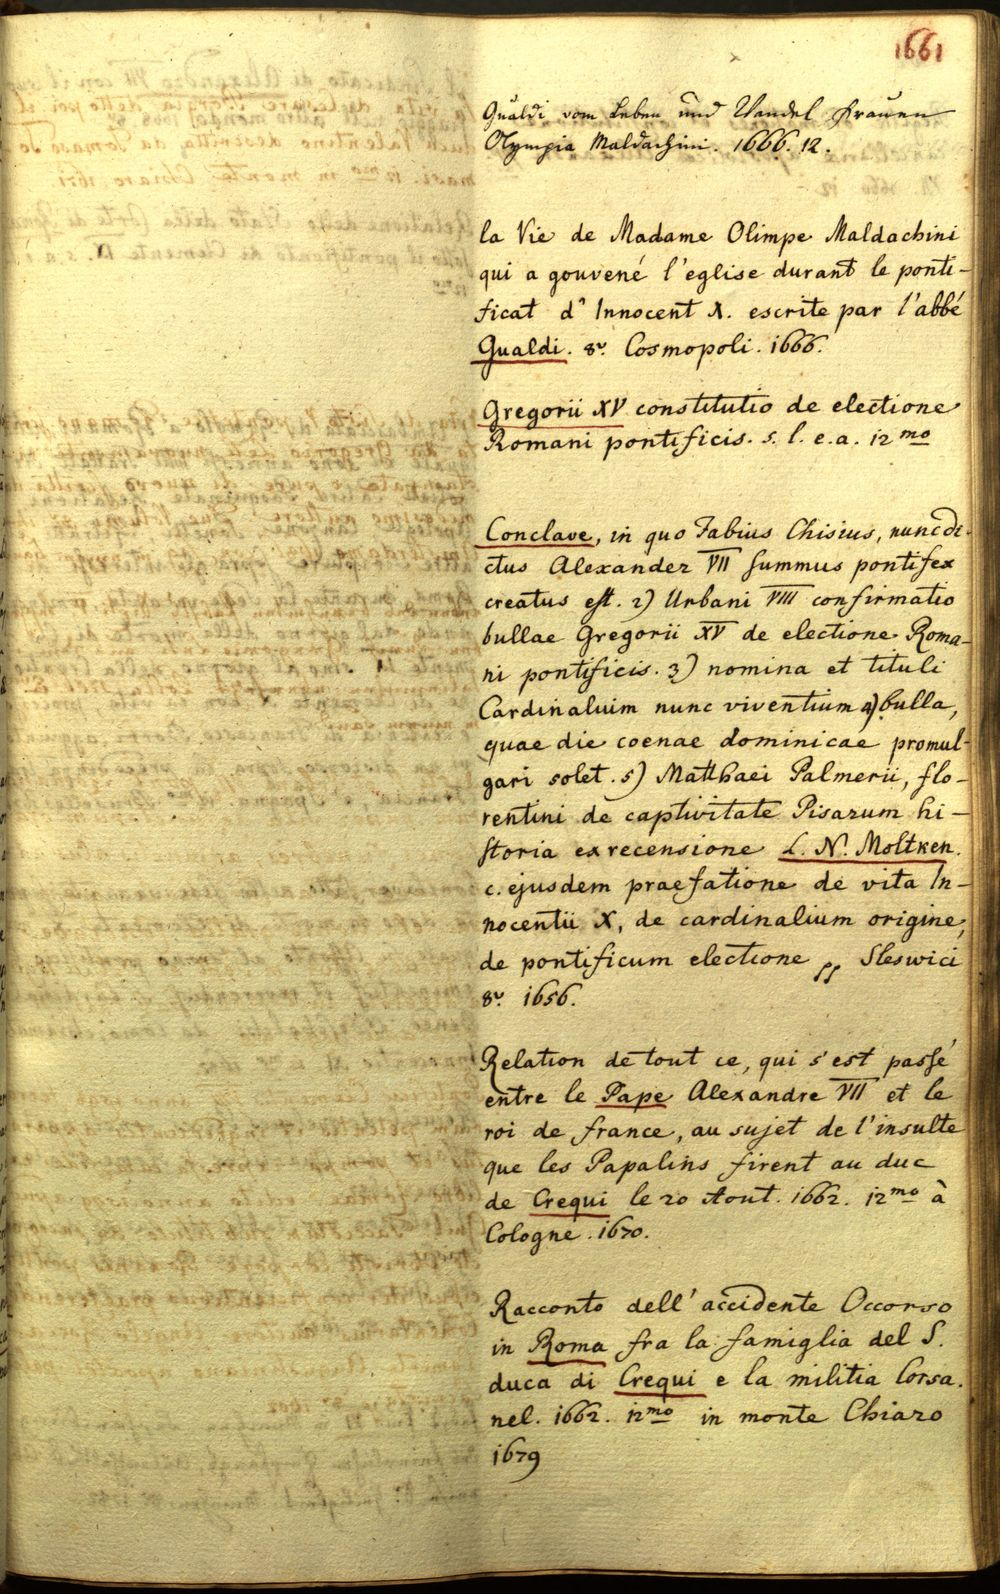 1661
Gualdi vom Leben und Wandel Frauen
Olympia Maldachini. 1666. 12.
la Vie de Madame Olimpe Maldachini
qui a gouvené l'eglise durant le ponti-
ficat d' Innocent X. escrite par l'abbé
Gualdi. 8v. Cosmopoli. 1666.
Gregorii XV constitutio de electione
Romani pontificis. s. l. e. a. 12mo
Conclave, in quo Fabius Chisius, nunc di-
ctus Alexander VII summus pontifex
creatus est. 2) Urbani VIII confirmatio
bullae Gregorii XV de electione Roma-
ni pontificis. 3) nomina et tituli
Cardinalium nunc viventium 4) bulla,
quae die coenae dominicae promul-
gari solet. 5) Matthaei Palmerii, flo-
rentini de captivitate Pisarum hi-
storia ex recensione L. N. Moltken.
c. ejusdem praefatione de vita In-
nocentii X, de cardinalium origine,
de pontificum electione pp Sleswici
8v. 1656.
Relation de tout ce, qui s'est passé
entre le Pape Alexandre VII et le
roi de france, au sujet de l'insulte
que les Papalins firent au duc
de Crequi le 20 Aout. 1662. 12mo à
Cologne. 1670.
Racconto dell' accidente Occorso
in Roma fra la famiglia del S.
duca di Crequi e la militia Corsa.
nel. 1662. 12mo in monte Chiaro
1679